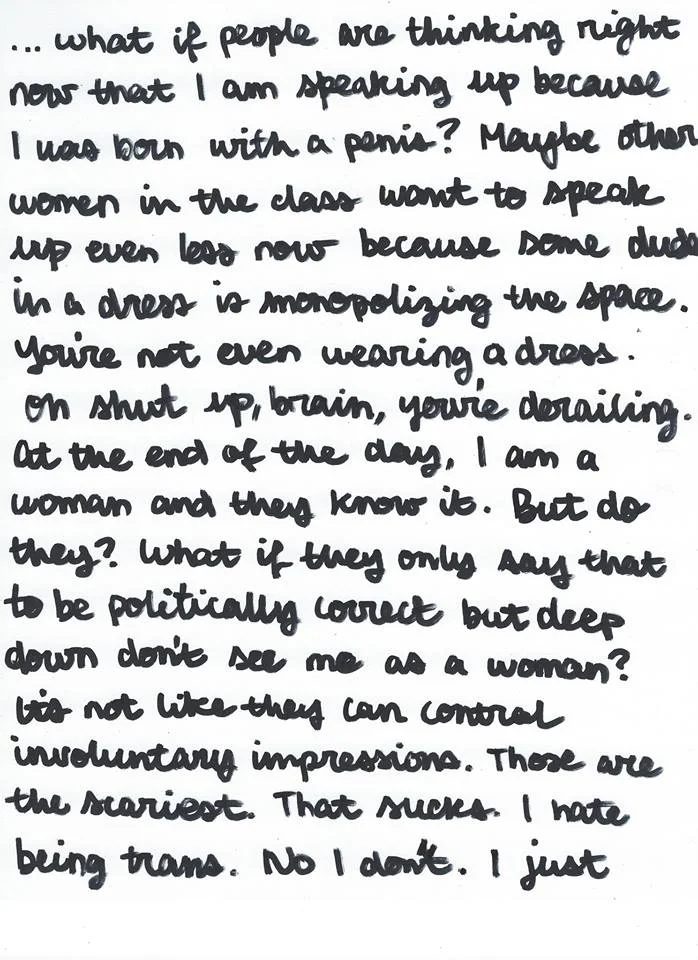 ... what if people are thinking right
now that I am speaking up because
I was born with a penis? Maybe other
women in the class want to speak
up even less now because some dude
in a dress is monopolizing the space.
You're not even wearing a dress.
Oh shut up, brain, you're derailing.
At the end of the day, I am a
woman and they know it. But do
they? What if they only say that
to be politically correct but deep
down don't see me as a woman?
It's not like they can control
involuntary impressions. Those are
the scariest. That sucks. I hate
being trans. No I don't. I just